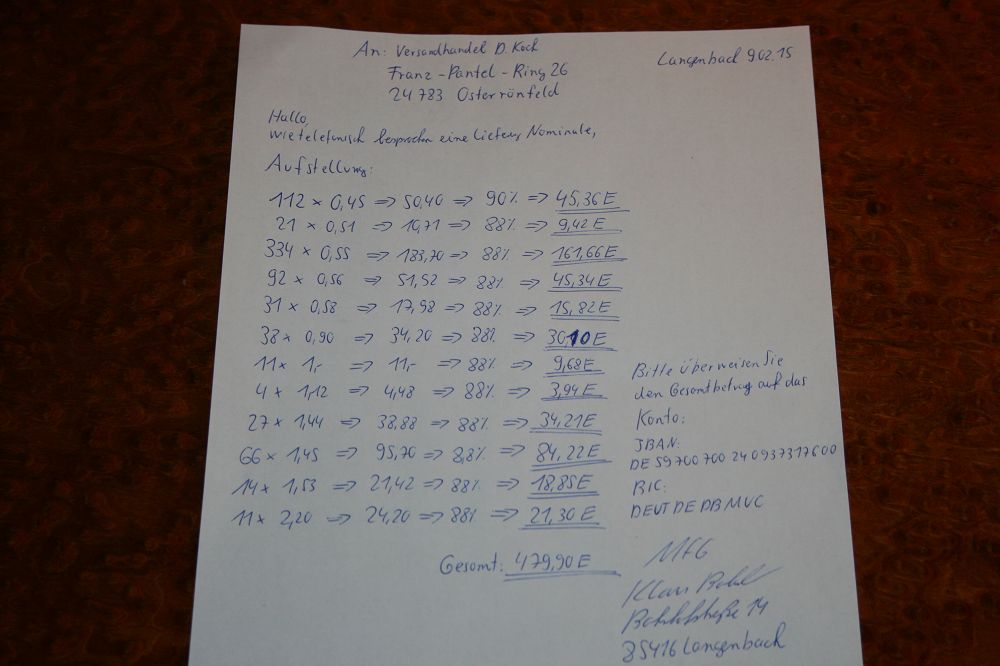 An: Versandhandel D. Koch
Franz-Pantel-Ring 26
24783 Osterrönfeld
Langenbach 9.02.15
Hallo,
wie telefonisch besprochen eine Lieferung Nominale,
Aufstellung:
112 × 0,45 => 50,40 => 90% => 45,36E
21 × 0,51 => 10,71 => 88% => 9,42E
334 × 0,55 => 183,70 => 88% => 161,66E
92 × 0,56 => 51,52 => 88% => 45,34E
31 × 0,58 => 17,98 => 88% => 15,82E
38 × 0,90 => 34,20 => 88% => 30,10E
11 × 1,- => 11,- => 88% => 9,68E
4 × 1,12 => 4,48 => 88% => 3,94E
27 × 1,44 => 38,88 => 88% => 34,21E
66 × 1,45 => 95,70 => 88% => 84,22E
14 × 1,53 => 21,42 => 88% => 18,85E
11 × 2,20 => 24,20 => 88% => 21,30E
Gesamt: 479,90E
Bitte überweisen Sie
den Gesamtbetrag auf das
Konto:
IBAN:
DE59700700240937317600
BIC:
DEUTDEDBMUC
MFG
Klaus
Bahnhofstraße 14
85416 Langenbach